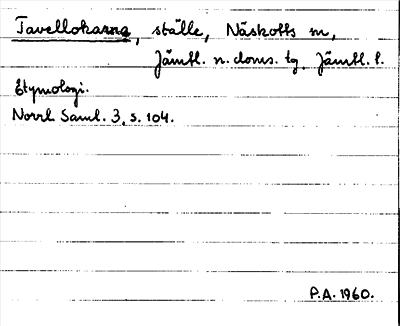 Tavellokarna, ställe, Näskotts sn,
Jämtl. n. doms. tg, Jämtl. l.
Etymologi.
Norrl. Saml. 3, s. 104.
P.A. 1960.